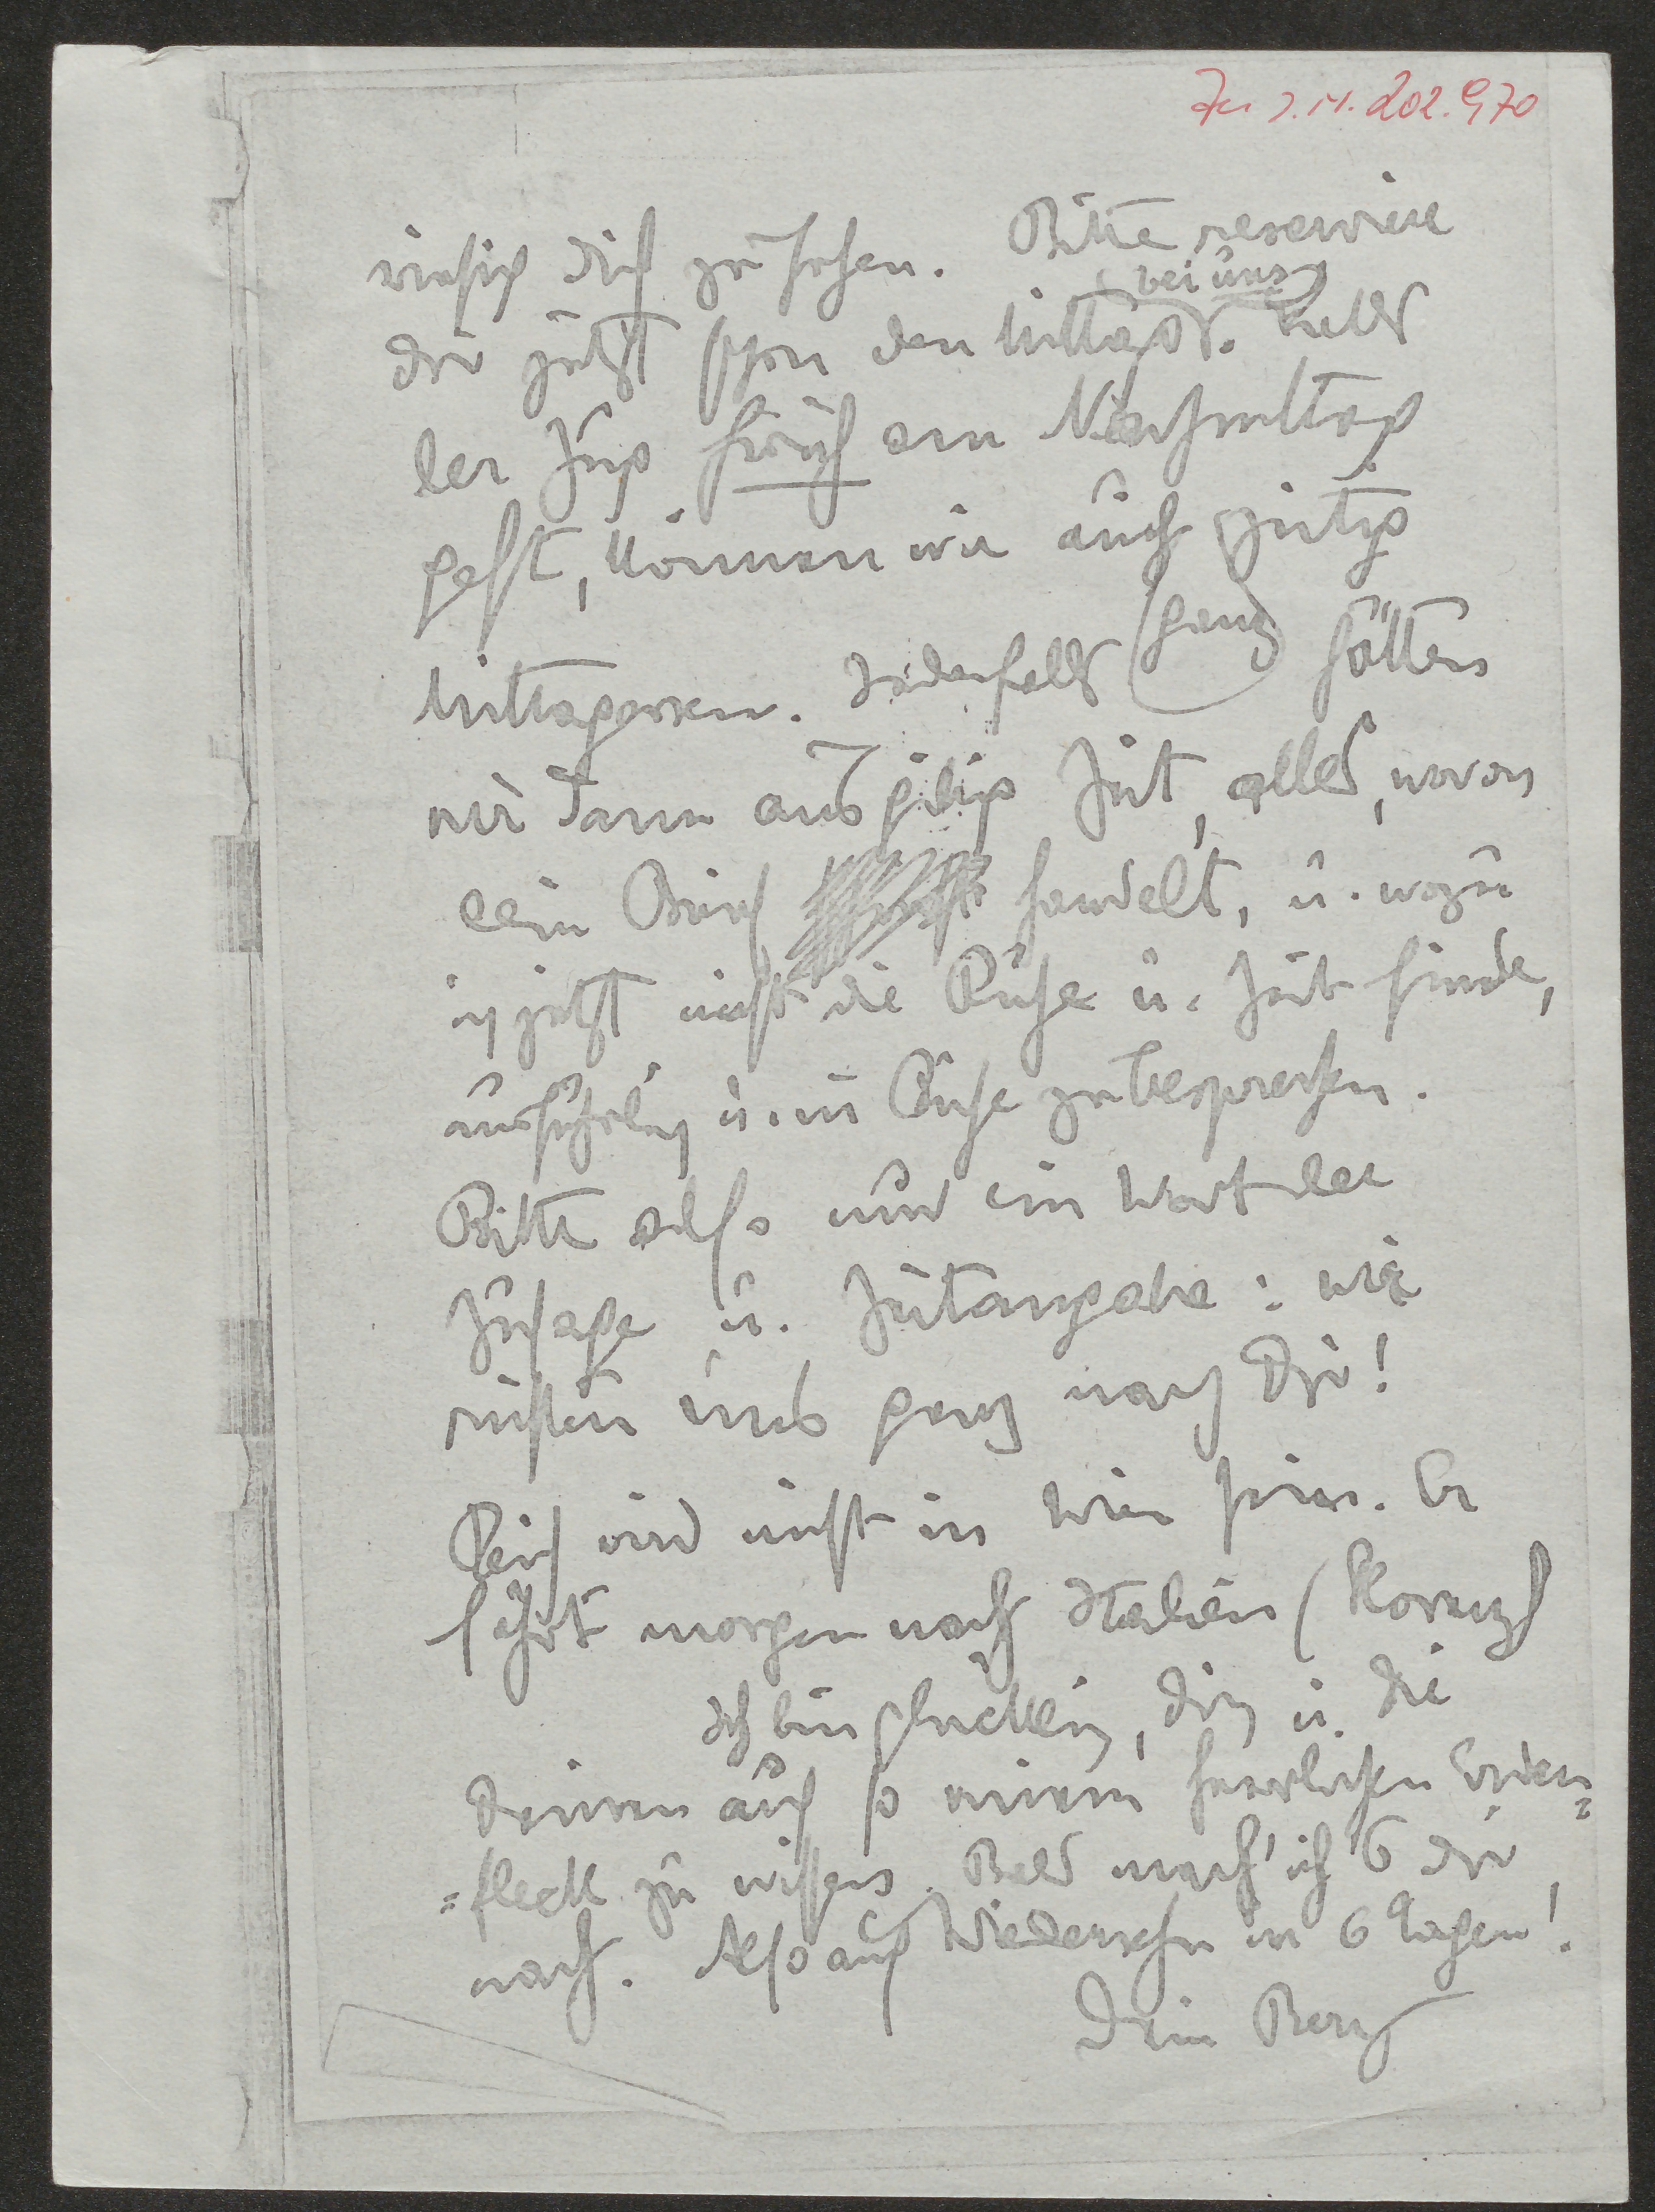 Zu I.N. 202.970
riesig dich zu sehen. Bitte reserviere
(bei uns)
dir jetzt schon den Mittags. Falls
der Zug früh am Nachmittag
geht, können wir auch zeitig
Mittagessen. Jedenfalls (ganz) hätten
wir dann ausgiebig Zeit, alles, wovon
dein Brief handelt, u. wozu
ich jetzt nicht die Ruhe u. Zeit finde,
ausführlich u. in Ruhe zu besprechen.
Bitte also nur ein Wort der
Zusage u. Zeitangabe: wir
richten uns ganz nach Dir!
Reich wird nicht in Wien sein. Er
fährt morgen nach Italien (Florenz)
Ich bin glücklich, dich u. die
Deinen auf so einem herrlichen Erden=
=fleck zu wissen. Bald mach' ich's dir
nach. Also auf Wiedersehn in 6 Tagen!
Dein Berg